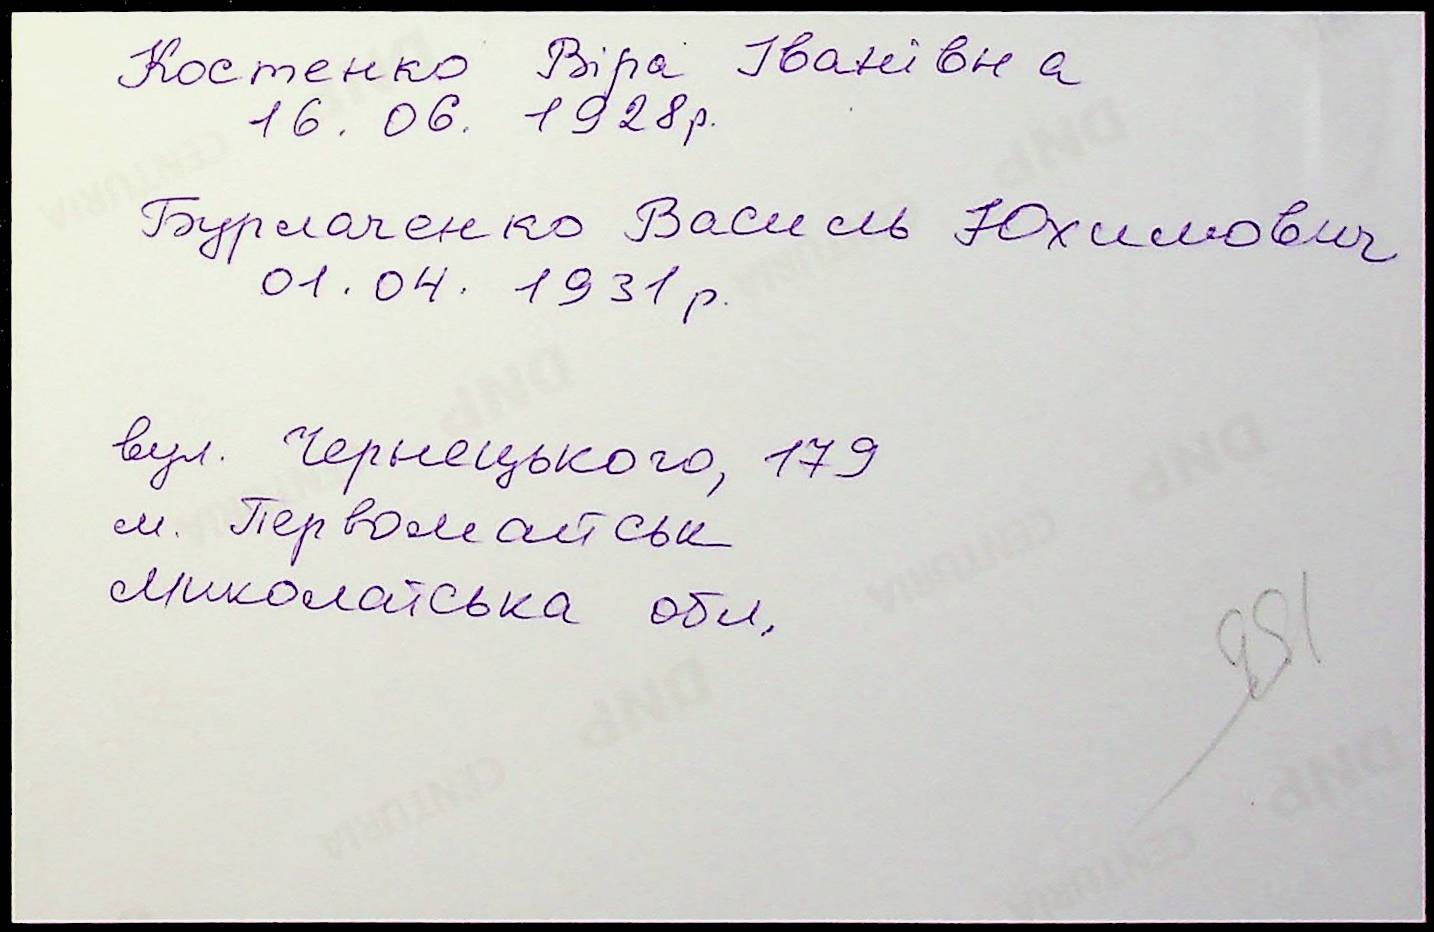 Костенко Віра Іванівна
16. 06. 1928р.
Бурлаченко Василь Юхимович
01. 04. 1931р.
вул. Чернецького, 179
м. Первомайськ
Миколаївська обл.
951